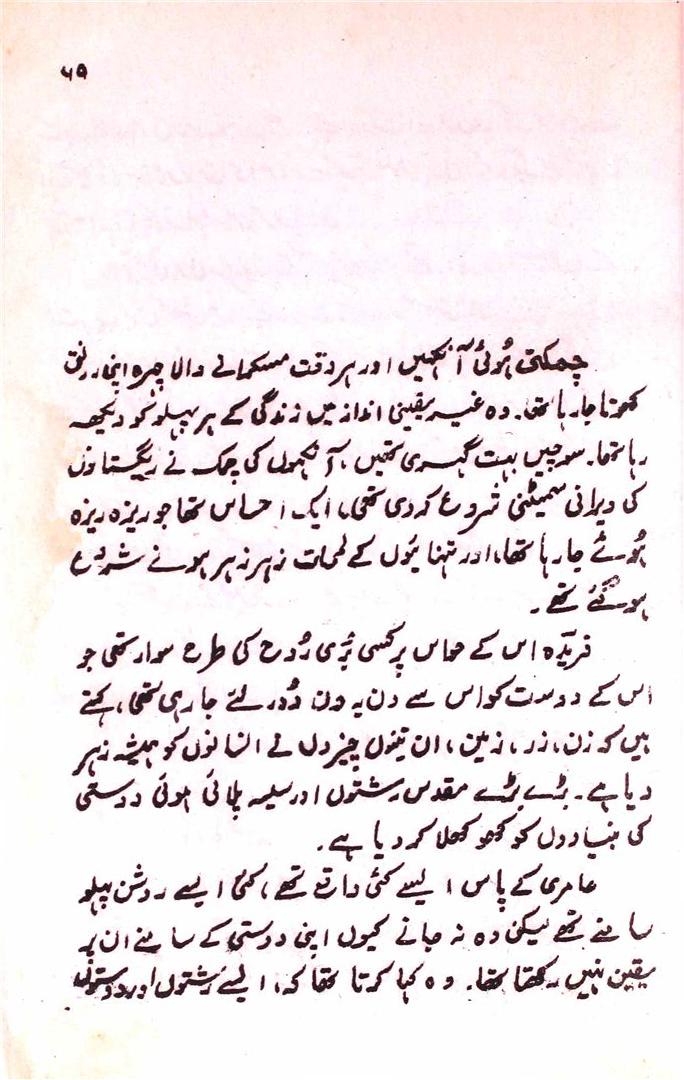 ۶۹
چمکتی ہُوئی آنکھیں اور ہر وقت مسکرانے والا چہرہ اپنی رونق
کھوتا جا رہا تھا۔ وہ غیر یقینی انداز میں زندگی کے ہر پہلو کو دیکھ
رہا تھا۔ سوچیں بہت گہری تھیں، آنکھوں کی چمک نے ریگستانوں
کی ویرانی سمیٹنی شروع کر دی تھی، ایک احساس تھا جو ریزہ ریزہ
ہُوئے جا رہا تھا، اور تنہائیوں کے لمحات زہر زہر ہونے شروع
ہو گئے تھے۔
فریدہ اس کے حواس پر کسی بُری رُوح کی طرح سوار تھی جو
اس کے دوست کو اس سے دن بہ دن دُور لئے جا رہی تھی، کہتے
ہیں کہ زن، زر، زمین، ان تینوں چیزوں نے انسانوں کو ہمیشہ زہر
دیا ہے۔ بڑے بڑے مقدس رشتوں اور سیسہ پلائی ہوئی دوستی
کی بنیادوں کو کھوکھلا کر دیا ہے۔
عامری کے پاس ایسے کئی واقعے تھے، کئی ایسے روشن پہلو
سامنے تھے لیکن وہ نہ جانے کیوں اپنی دوستی کے سامنے ان پر
یقین نہیں رکھتا تھا۔ وہ کہا کرتا تھا کہ، ایسے رشتوں اور دوستوں